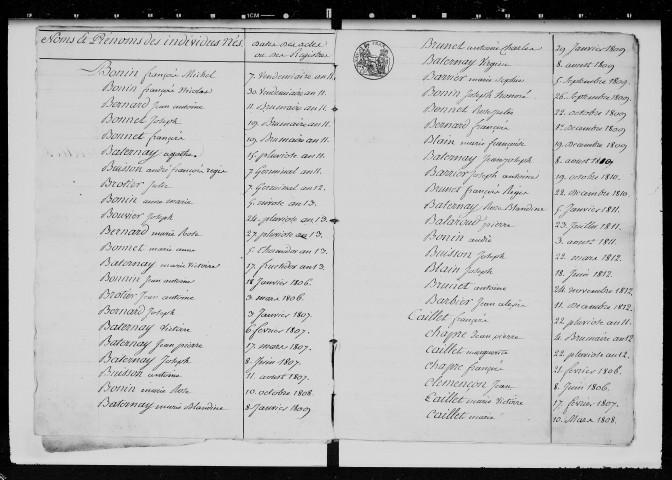 Noms & Prénoms des individus nés
dates des actes ou des Registres
Bonin françois Michel 7. Vendemiaire an 11.
Bonin françois Nicolas 30. Vendemiaire an 11.
Bernard Jean antoine 11. Brumaire an 11.
Bonnet Joseph 19. Brumaire an 11.
Bonnet françois 19. Brumaire an 11.
Baternay agathe 15. pluviose an 11.
Buisson andré françois regis 7. Germinal an 11.
Brotier Julie 7. Germinal an 12.
Bonin anne marie 5. nivose an 13.
Bouvier Joseph 24. pluviose an 13.
Bernard marie Rose 27. pluviose an 13.
Bonnet marie anne 5. Thermidor an 13.
Baternay marie victoire 17. fructidor an 13.
Bonnin Jean antoine 18 Janvier 1806.
Brotier Jean antoine 3. mars 1806.
Bernard Joseph 3 Janvier 1807.
Baternay Victoire 6 fevrier 1807.
Baternay Jean pierre 17. mars 1807.
Baternay Joseph 8. Juin 1807.
Buisson antoine 11. aoust 1807.
Bonin marie Rose 10. octobre 1808.
Baternay marie Blandine 8. Janvier 1809
Brunet antoine Charles 29. Janvier 1809
Baternay Virginie 8. avril 1809
Barrier marie sophie 5 Septembre 1809.
Bonin Joseph honoré 26. Septembre 1809.
Bonnet 22. octobre 1809
Bernard françois 1er Decembre 1809
Blain marie françoise 19. Decembre 1809
Baternay Jean joseph 8. aoust 1810
Barrier Joseph antoine 19. octobre 1810.
Brunet françois Regis 22. decembre 1810.
Baternay Rose Blandine 5. Janvier 1811.
Balavoud pierre 23. Juillet 1811.
Bonin andré 3. aoust 1811.
Buisson Joseph 22. mars 1812.
Blain Joseph 18. Juin 1812.
Brunet antoine 24. novembre 1812
Barbier Jean alexis 11. decembre 1812.
Caillet françois 22. pluviose an 11.
chapre Jean pierre 4. Brumaire an 12
Caillet marguerite 22. pluviose an 12.
chapre françois 21. fevrier 1806.
Clemençon Jean 8. Juin 1806.
Caillet marie Victoire 17. fevrier 1807.
Caillet marie 10. Mars 1808.